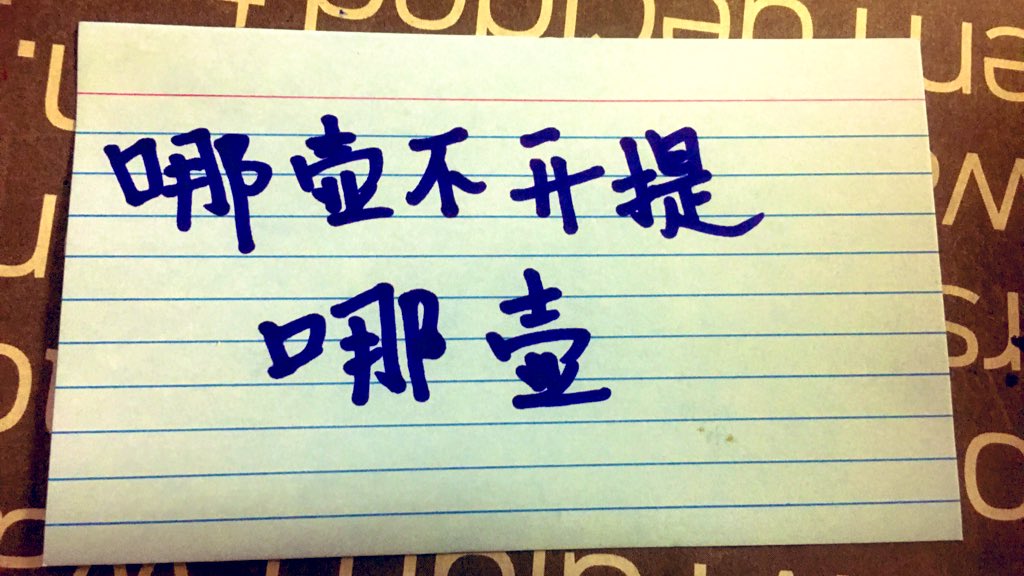 哪壶不开提
哪壶